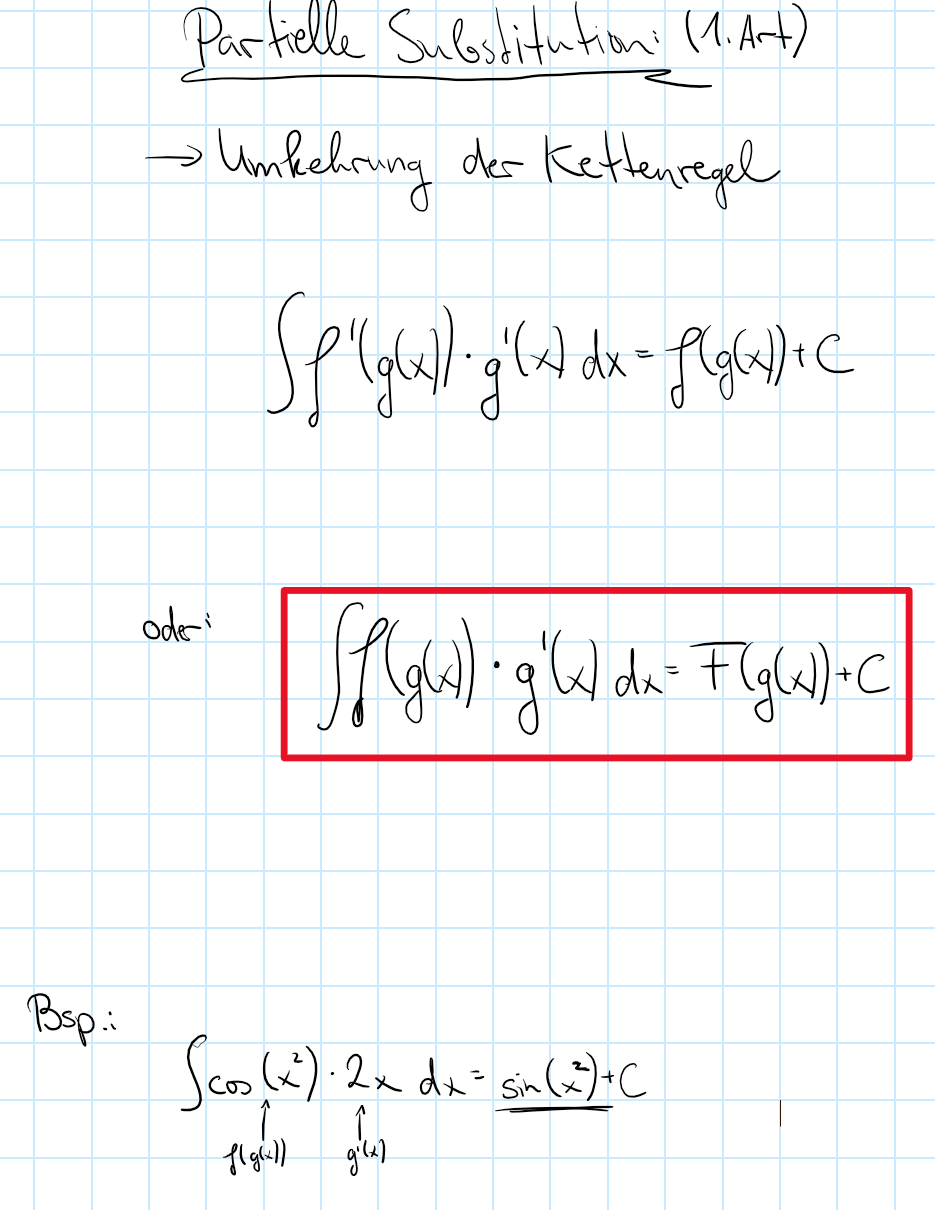 Partielle Substitution: (1. Art)
→ Umkehrung der Kettenregel
∫f'(g(x)) · g'(x) dx = f(g(x)) + C
oder:
∫f(g(x)) · g'(x) dx = F(g(x)) + C
Bsp.:
∫cos(x²) · 2x dx = sin(x²) + C
f(g(x)) g'(x)